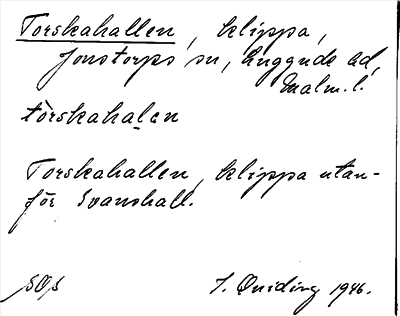 Torskahallen, klippa,
Jonstorps sn, Luggude hd,
Malm. l.
tòrskahalẹn
Torskahallen, klippa utan-
för Svanshall.
SOs S. Quiding 1946.